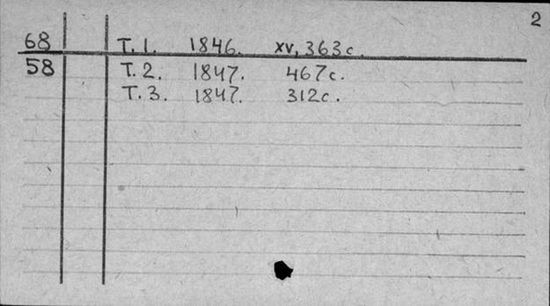 2
68 Т. 1. 1846. XV, 363 с.
58 Т. 2. 1847. 467 с.
Т. 3. 1847. 312 с.